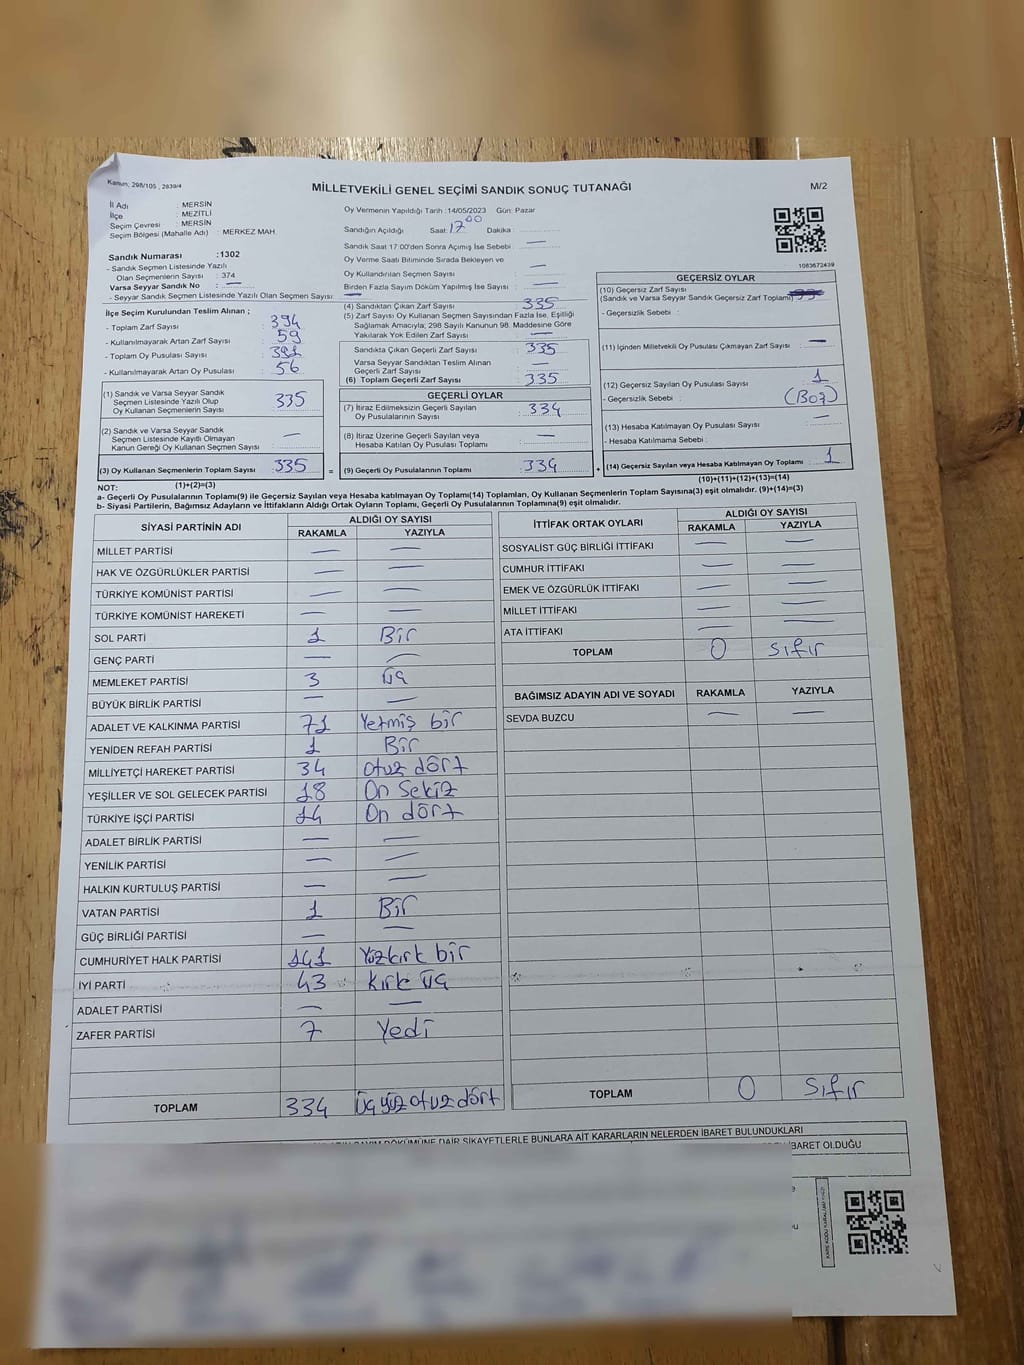 Kanun; 298/105 , 2839/4
MİLLETVEKİLİ GENEL SEÇİMİ SANDIK SONUÇ TUTANAĞI
M/2
İl Adı : MERSİN
İlçe : MEZİTLİ
Seçim Çevresi : MERSİN
Seçim Bölgesi (Mahalle Adı) : MERKEZ MAH.
Sandık Numarası :1302
- Sandık Seçmen Listesinde Yazılı
Olan Seçmenlerin Sayısı : 374
Varsa Seyyar Sandık No : —
- Seyyar Sandık Seçmen Listesinde Yazılı Olan Seçmen Sayısı: —
İlçe Seçim Kurulundan Teslim Alınan ;
- Toplam Zarf Sayısı : 394
- Kullanılmayarak Artan Zarf Sayısı : 59
- Toplam Oy Pusulası Sayısı : 391
- Kullanılmayarak Artan Oy Pusulası : 56
(1) Sandık ve Varsa Seyyar Sandık
Seçmen Listesinde Yazılı Olup
Oy Kullanan Seçmenlerin Sayısı 335
(2) Sandık ve Varsa Seyyar Sandık
Seçmen Listesinde Kayıtlı Olmayan
Kanun Gereği Oy Kullanan Seçmen Sayısı —
(3) Oy Kullanan Seçmenlerin Toplam Sayısı 335
Oy Vermenin Yapıldığı Tarih :14/05/2023 Gün: Pazar
Sandığın Açıldığı Saat: 17 00 Dakika :
Sandık Saat 17:00'den Sonra Açımış İse Sebebi : —
Oy Verme Saati Bitiminde Sırada Bekleyen ve
Oy Kullandırılan Seçmen Sayısı : —
Birden Fazla Sayım Döküm Yapılmış İse Sayısı : —
(4) Sandıktan Çıkan Zarf Sayısı : 335
(5) Zarf Sayısı Oy Kullanan Seçmen Sayısından Fazla İse, Eşitliği
Sağlamak Amacıyla; 298 Sayılı Kanunun 98. Maddesine Göre
Yakılarak Yok Edilen Zarf Sayısı : —
Sandıkta Çıkan Geçerli Zarf Sayısı : 335
Varsa Seyyar Sandıktan Teslim Alınan
Geçerli Zarf Sayısı : —
(6) Toplam Geçerli Zarf Sayısı : 335
GEÇERLİ OYLAR
(7) İtiraz Edilmeksizin Geçerli Sayılan
Oy Pusulalarının Sayısı : 334
(8) İtiraz Üzerine Geçerli Sayılan veya
Hesaba Katılan Oy Pusulası Toplamı : —
= (9) Geçerli Oy Pusulalarının Toplamı : 334
1083672439
GEÇERSİZ OYLAR
(10) Geçersiz Zarf Sayısı
(Sandık ve Varsa Seyyar Sandık Geçersiz Zarf Toplamı)
- Geçersizlik Sebebi :
(11) İçinden Milletvekili Oy Pusulası Çıkmayan Zarf Sayısı : —
(12) Geçersiz Sayılan Oy Pusulası Sayısı : 1
- Geçersizlik Sebebi : (Boz)
(13) Hesaba Katılmayan Oy Pusulası Sayısı : —
- Hesaba Katılmama Sebebi :
+ (14) Geçersiz Sayılan veya Hesaba Katılmayan Oy Toplamı : 1
NOT: (1)+(2)=(3)
(10)+(11)+(12)+(13)=(14)
a- Geçerli Oy Pusulalarının Toplamı(9) ile Geçersiz Sayılan veya Hesaba katılmayan Oy Toplamı(14) Toplamları, Oy Kullanan Seçmenlerin Toplam Sayısına(3) eşit olmalıdır. (9)+(14)=(3)
b- Siyasi Partilerin, Bağımsız Adayların ve İttifakların Aldığı Ortak Oyların Toplamı, Geçerli Oy Pusulalarının Toplamına(9) eşit olmalıdır.
SİYASİ PARTİNİN ADI ALDIĞI OY SAYISI
RAKAMLA YAZIYLA
MİLLET PARTİSİ — —
HAK VE ÖZGÜRLÜKLER PARTİSİ — —
TÜRKİYE KOMÜNİST PARTİSİ — —
TÜRKİYE KOMÜNİST HAREKETİ — —
SOL PARTİ 1 Bir
GENÇ PARTİ — —
MEMLEKET PARTİSİ 3 Üç
BÜYÜK BİRLİK PARTİSİ — —
ADALET VE KALKINMA PARTİSİ 71 Yetmiş bir
YENİDEN REFAH PARTİSİ 1 Bir
MİLLİYETÇİ HAREKET PARTİSİ 34 otuz dört
YEŞİLLER VE SOL GELECEK PARTİSİ 18 On Sekiz
TÜRKİYE İŞÇİ PARTİSİ 14 On dört
ADALET BİRLİK PARTİSİ — —
YENİLİK PARTİSİ — —
HALKIN KURTULUŞ PARTİSİ — —
VATAN PARTİSİ 1 Bir
GÜÇ BİRLİĞİ PARTİSİ — —
CUMHURİYET HALK PARTİSİ 141 Yüzkırk bir
İYİ PARTİ 43 Kırk üç
ADALET PARTİSİ — —
ZAFER PARTİSİ 7 Yedi
TOPLAM 334 Üç yüz otuz dört
İTTİFAK ORTAK OYLARI ALDIĞI OY SAYISI
RAKAMLA YAZIYLA
SOSYALİST GÜÇ BİRLİĞİ İTTİFAKI — —
CUMHUR İTTİFAKI — —
EMEK VE ÖZGÜRLÜK İTTİFAKI — —
MİLLET İTTİFAKI — —
ATA İTTİFAKI — —
TOPLAM 0 Sıfır
BAĞIMSIZ ADAYIN ADI VE SOYADI RAKAMLA YAZIYLA
SEVDA BUZCU — —
TOPLAM 0 Sıfır
SAYIM DÖKÜMÜNE DAİR ŞİKAYETLERLE BUNLARA AİT KARARLARIN NELERDEN İBARET BULUNDUKLARI
İBARET OLDUĞU